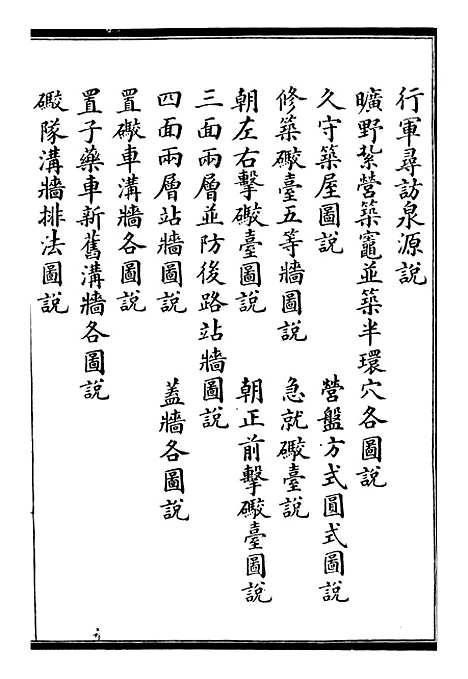 行軍尋訪泉源說
曠野紮營築竈並築半環穴各圖說
久守築屋圖說　營盤方式圓式圖說
修築礮臺五等牆圖說　急就礮臺說
朝左右擊礮臺圖說　朝正前擊礮臺圖說
三面兩層並防後路站牆圖說
四面兩層站牆圖說　蓋牆各圖說
置礮車溝牆各圖說
置子藥車新舊溝牆各圖說
礮隊溝牆排法圖說